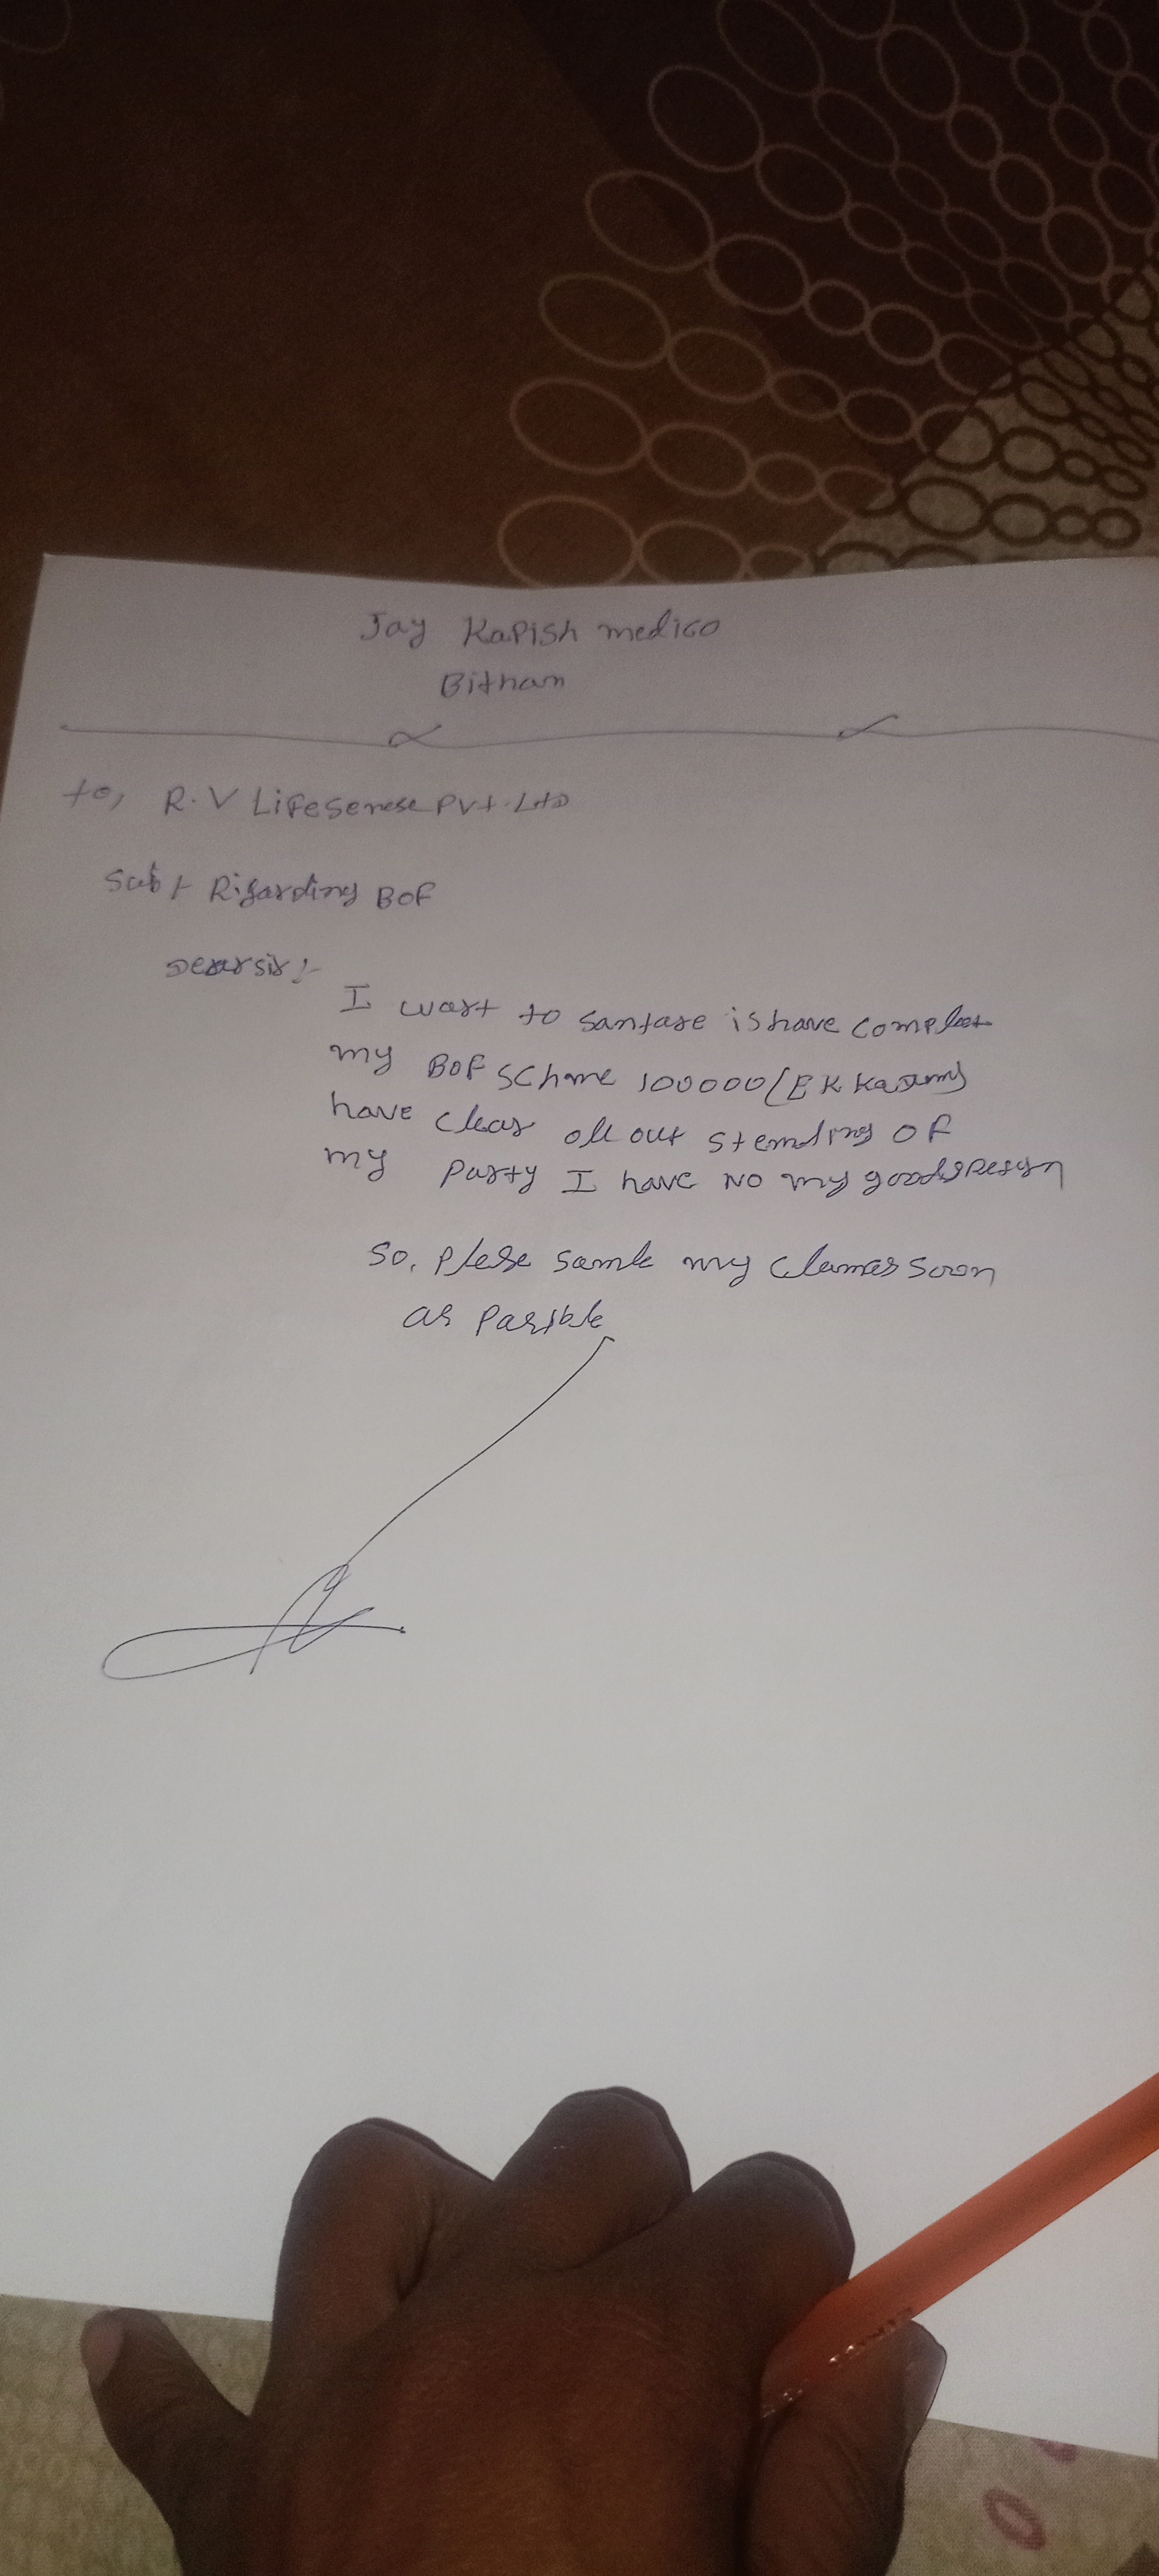 Jay Kapish medico
Bitham
to, R.V Lifesense PVt. Ltd
Sub:- Rigarding BOF
Dear sir :-
I want to sanfare is have complet
my BOF SChme 100000/
have clear all out Stending OF
my Party I have NO my goods
So, Plese my Clames Soon
as Pasible